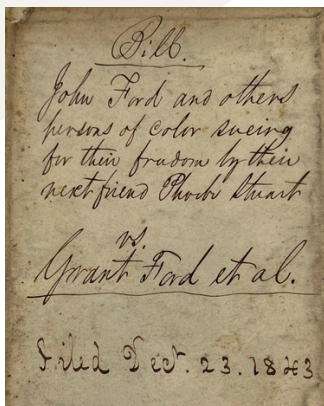 Bill.
John Ford and others
persons of color sueing
for their freedom by their
next friend Phoebe Stuart
vs.
Grant Ford et al.
Filed Dect. 23. 1843